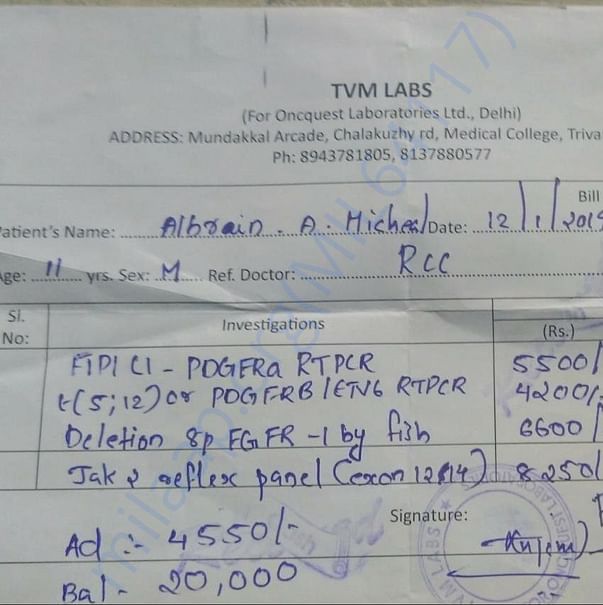 TVM LABS
(For Oncquest Laboratories Ltd., Delhi)
ADDRESS: Mundakkal Arcade, Chalakuzhy rd, Medical College, Triva
Ph: 8943781805, 8137880577
Bill
atient's Name: Albrain. A. Micheal Date: 12/1/2019
Age: 11 yrs. Sex: M Ref. Doctor: RCC
Sl. No: Investigations (Rs.)
FIPICI - PDGFRa RTPCR 5500/
t(5;12) or PDGFRB/ETV6 RTPCR 4200/-
Deletion 8p FGFR-1 by fish 6600/
Jak 2 reflex panel (exon 12&14) 8250/
Signature:
Ad :- 4550/-
Bal - 20,000
TVM LABS